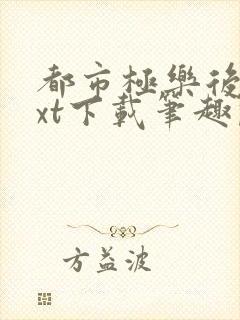 都市極樂後
xt下載筆趣
方益波